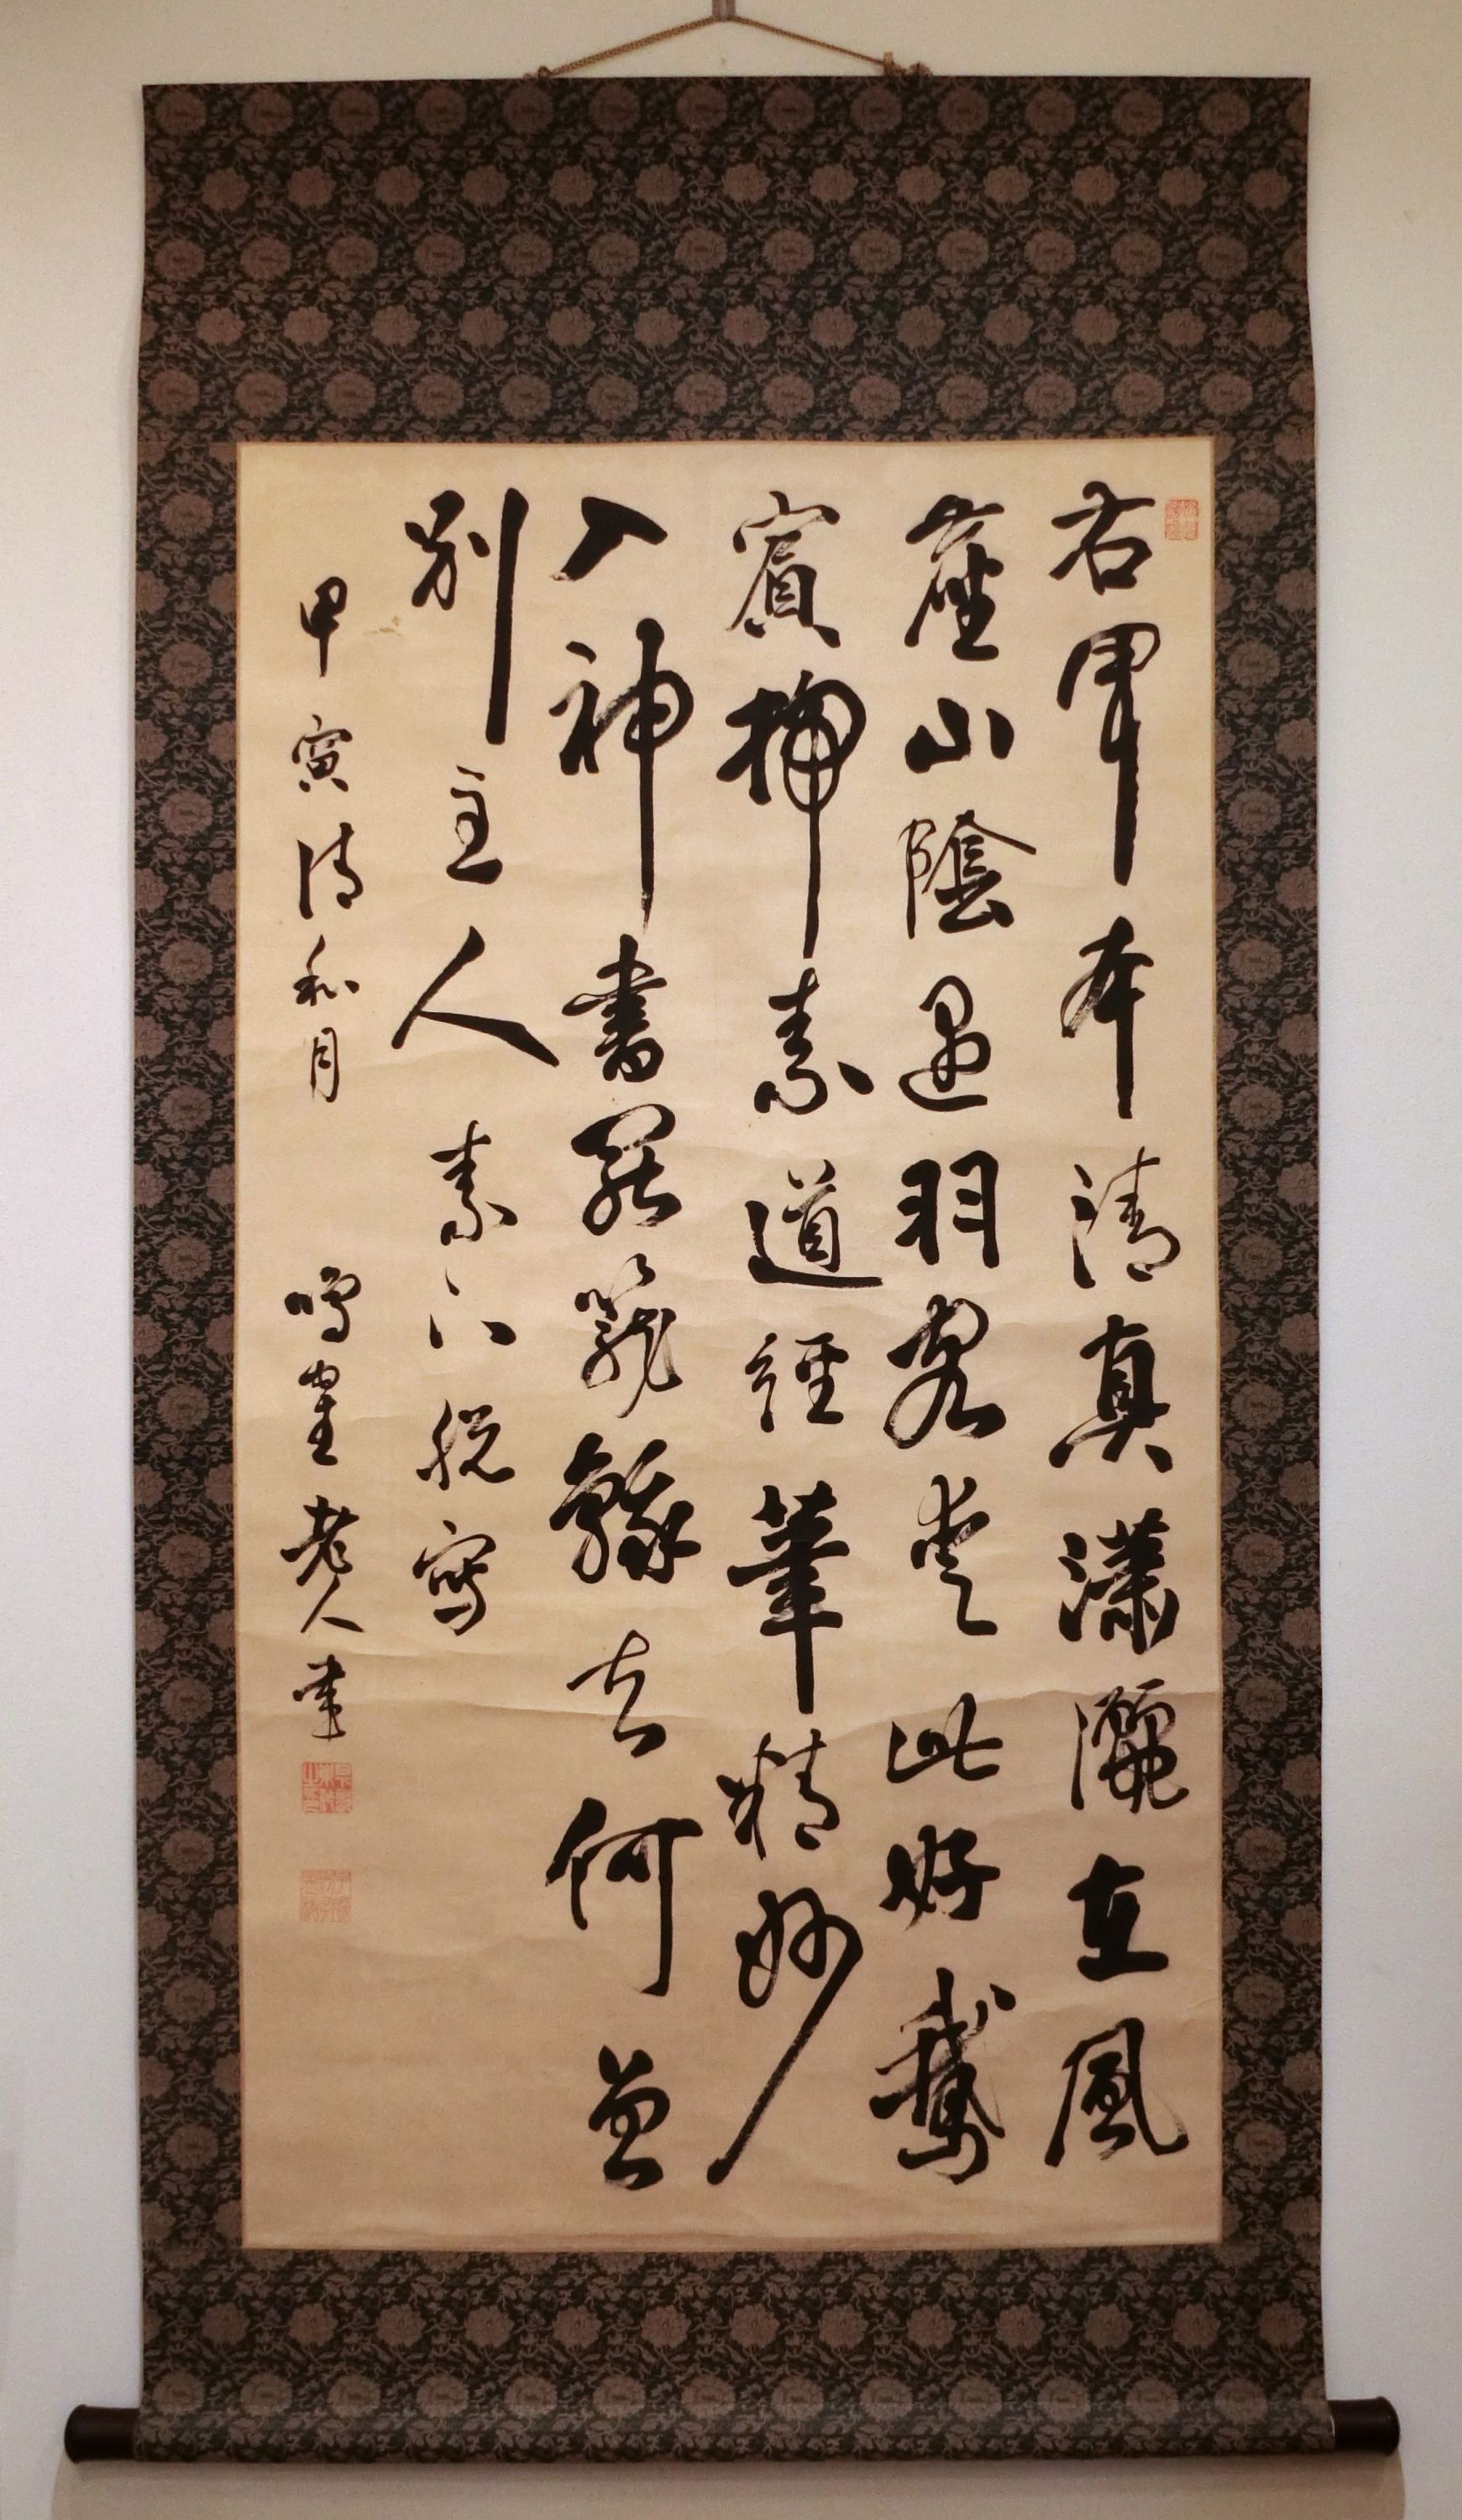 右軍本清真瀟灑在風
塵山陰遇羽客愛此好鵞
賓掃素道經筆精妙
入神書罷籠鵝去何曽
別主人 素下脱寫
甲寅清和月 鳴寉老人筆